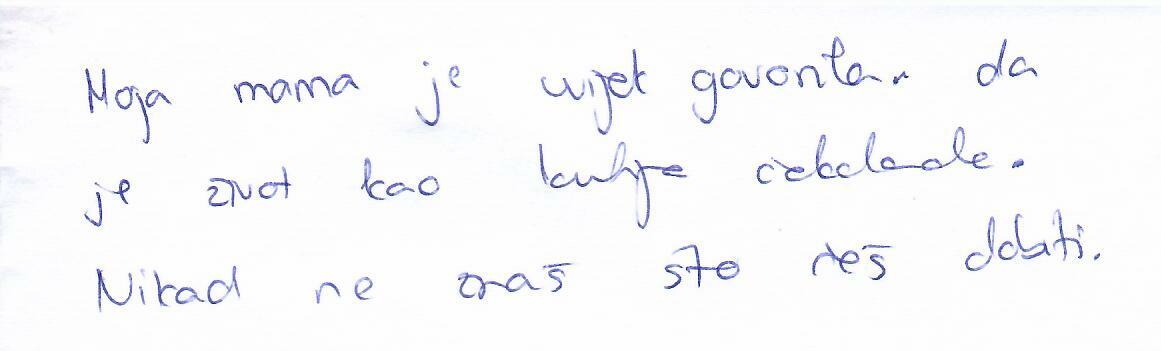 Moja mama je uvijek govorila da
je život kao kutija čokolade.
Nikad ne znaš što ćeš dobiti.